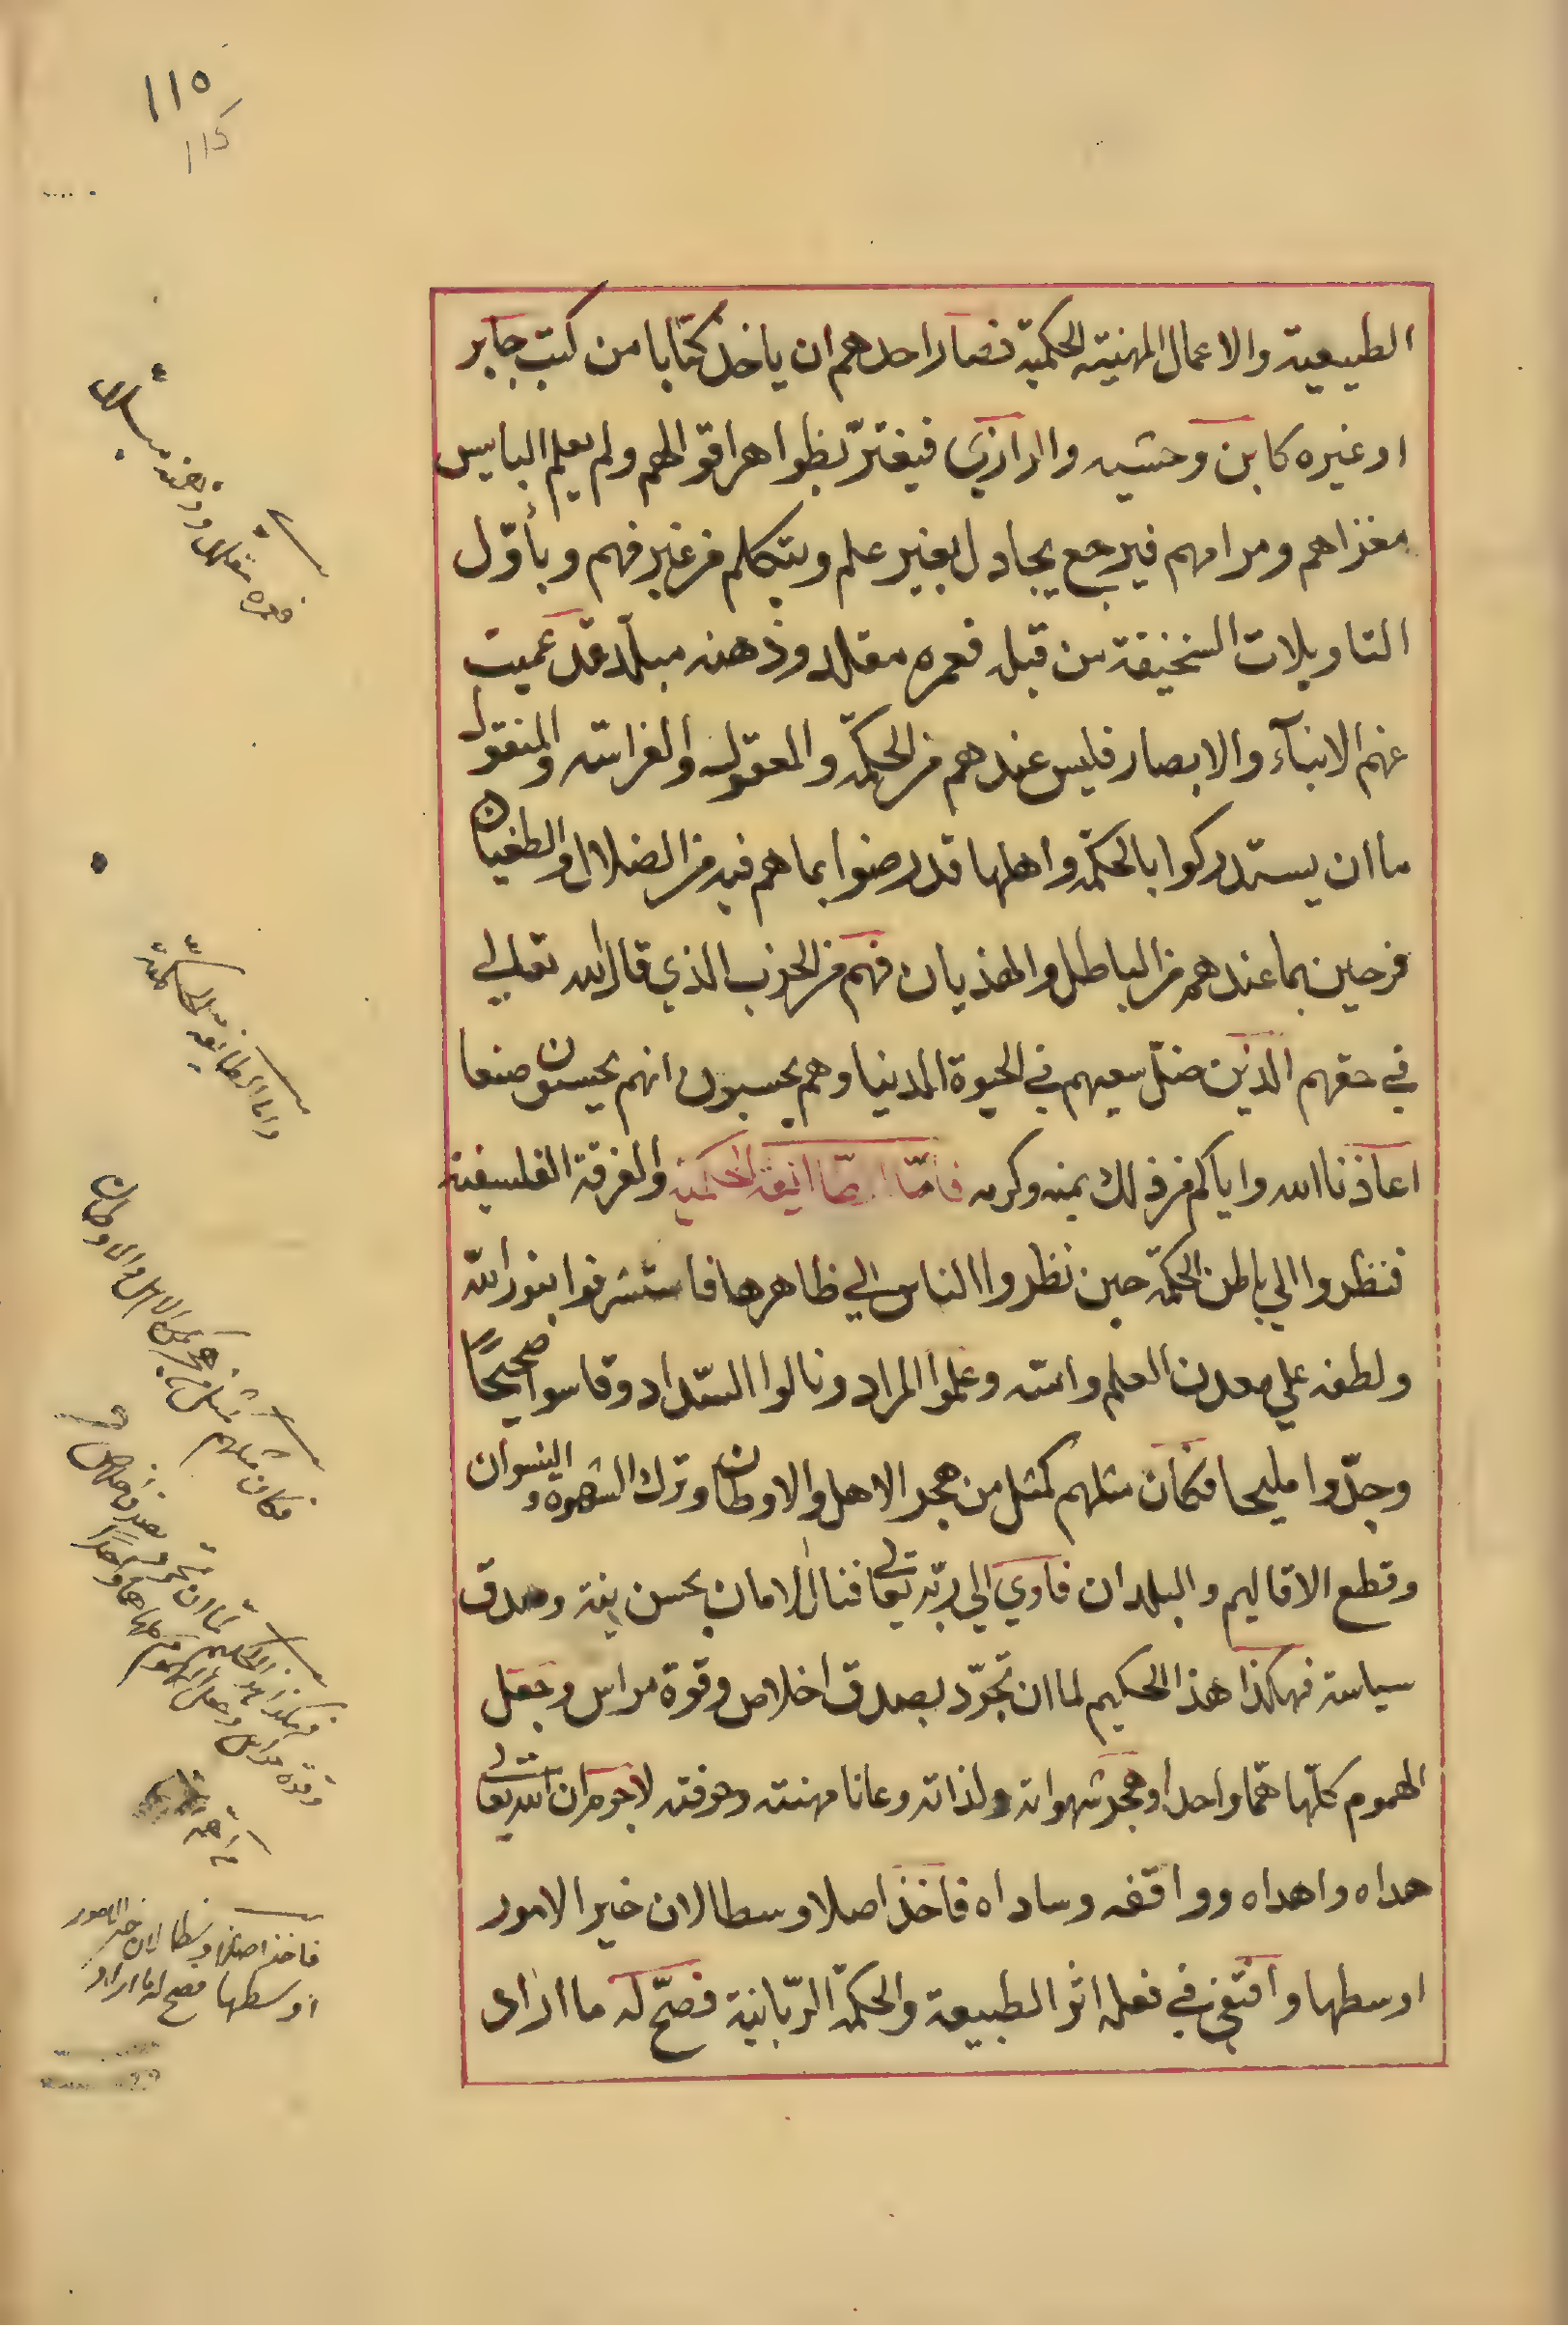 ١١٥
115
الطبيعية والاعمال المهنية الحكمية فصار احدهم ان ياخذ كتابا من كتب جابر
او غيره كابن وحشيه والرازي فيغترّ بظواهر اقوالهم ولم يعلم البايس
مغزاهم ومرامهم فيرجع يجادل بغير علم ويتكلم من غير فهم وبأوّل
التاويلات السخيفة من قبله فعمره مقلد وذهنه مبلّد قد عميت
عنهم الانبآء والابصار فليس عندهم من الحكمة والمعقول والفراسه والمنقول
ما ان يستدركوا بالحكمة واهلها قد رضوا بما هم فيه من الضلال والطغيان
فرحين بما عندهم من الباطل والهذيان فهم من الحزب الذي قال الله تعالي
في حقهم الذين ضلّ سعيهم في الحيوة الدنيا وهم يحسبون انهم يحسنون صنعا
اعاذنا الله واياكم من ذلك بمنه وكرمه فامّا الطّائفة الحكمية والفرقة الفلسفية
فنظروا الي باطن الحكمة حين نظروا الناس الي ظاهرها فاستشرفوا بنور الله
ولطفه علي معدن العلم واسّه وعلموا المراد ونالوا السّداد وقاسوا صحيحًا
وجدّوا مليحا فكان مثلهم كمثل من هجر الاهل والاوطان وترك الشهوه والنسوان
وقطع الاقاليم والبلدان فاوي الي ربّه تعالى فنال الامان بحسن نية وصدق
سياسة فهكذا هذا الحكيم لما ان تجرّد بصدق اخلاص وقوة مراس وجعل
الهموم كلّها همّا واحدا وهجر شهواته ولذاته وعانا مهنته وحرفته لاجرم ان الله تعالى
هداه واهداه ووافقه وساداه فاخذ اصلا وسطا لان خير الامور
اوسطها واقتفي في فعله اثر الطبيعة والحكمة الربّانية فصحّ له ما اراد
فعمره مقلد وذهنه مبلد
واما الطايفة الحكمية
فكان مثلهم كمثل من هجر الاهل والاوطان
فهكذا هذا الحكيم لما ان تجرد بصدق اخلاص و
وقوة مراس وجعل الهموم كلها هما واحدًا
فاخذ اصلا وسطا لان خير الامور
اوسطها فصح له ما اراد